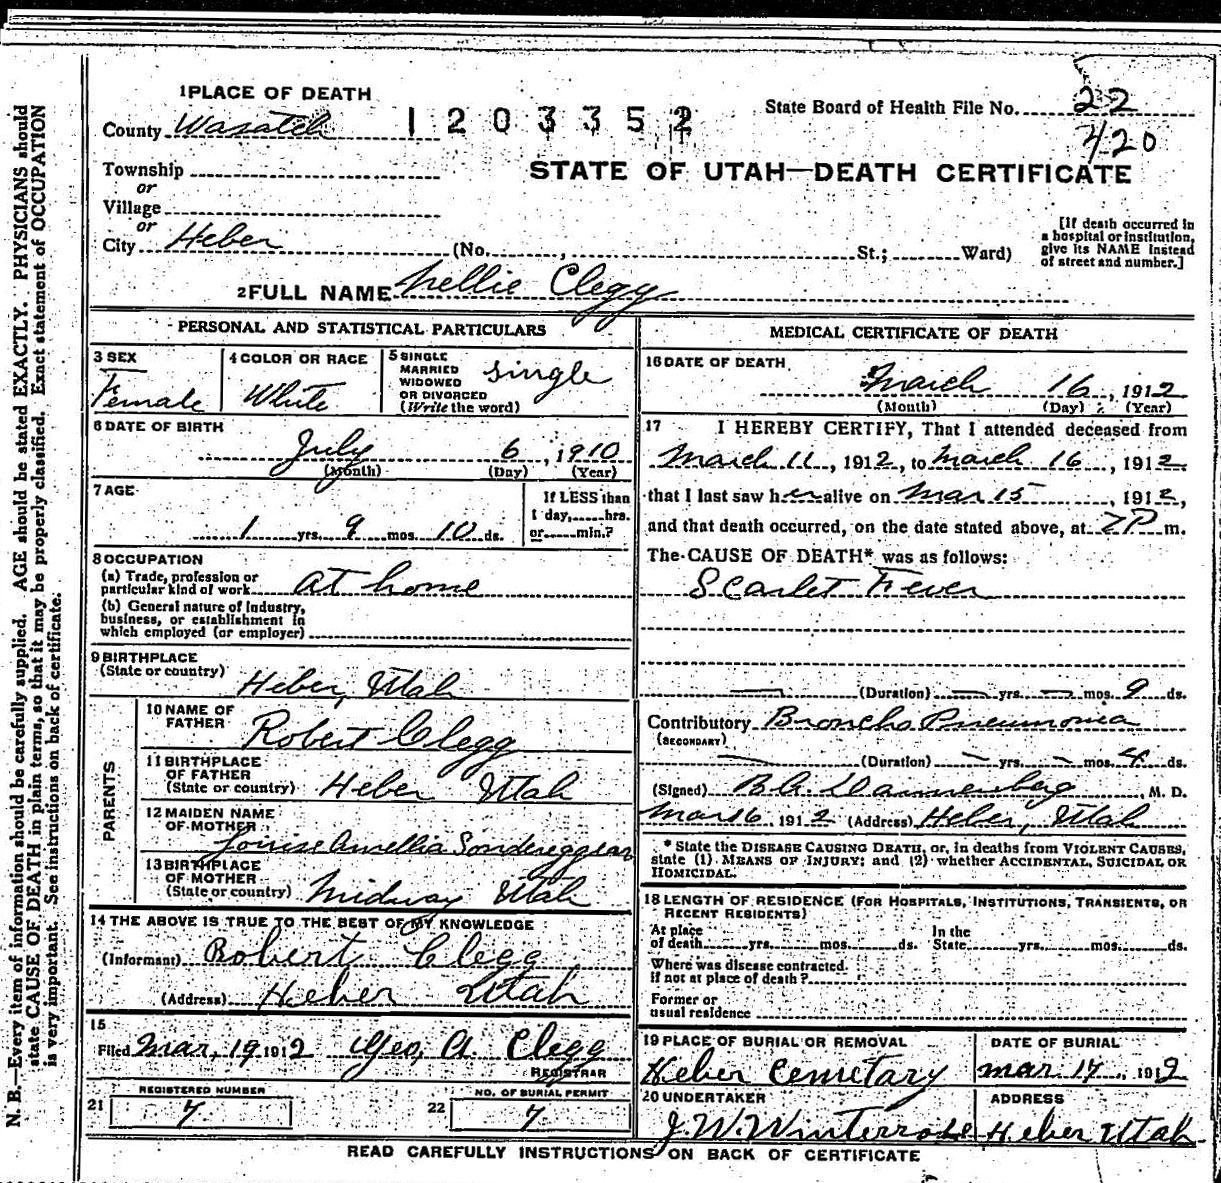 1 PLACE OF DEATH
County Wasatch
1203352
State Board of Health File No. 22
420
Township
or
Village
or
City Heber (No. , St.; Ward)
STATE OF UTAH—DEATH CERTIFICATE
[If death occurred in
a hospital or institution,
give its NAME instead
of street and number.]
2 FULL NAME Nellie Clegg
PERSONAL AND STATISTICAL PARTICULARS
3 SEX
Female
4 COLOR OR RACE
White
5 SINGLE
MARRIED
WIDOWED
OR DIVORCED
(Write the word)
single
6 DATE OF BIRTH
July 6, 1910
(Month) (Day) (Year)
7 AGE
1 yrs. 9 mos. 10 ds.
If LESS than
1 day, hrs.
or min.?
8 OCCUPATION
(a) Trade, profession or
particular kind of work at home
(b) General nature of industry,
business, or establishment in
which employed (or employer)
9 BIRTHPLACE
(State or country)
Heber, Utah
PARENTS
10 NAME OF
FATHER
Robert Clegg
11 BIRTHPLACE
OF FATHER
(State or country) Heber Utah
12 MAIDEN NAME
OF MOTHER
Louise Amellia
13 BIRTHPLACE
OF MOTHER
(State or country) Midway Utah
14 THE ABOVE IS TRUE TO THE BEST OF MY KNOWLEDGE
(Informant) Robert Clegg
(Address) Heber Utah
15
Filed Mar, 19 1912 Geo, A. Clegg
REGISTRAR
REGISTERED NUMBER
21 7
NO. OF BURIAL PERMIT
22 7
MEDICAL CERTIFICATE OF DEATH
16 DATE OF DEATH
March 16, 1912
(Month) (Day) (Year)
17 I HEREBY CERTIFY, That I attended deceased from
March 11, 1912, to March 16, 1912.
that I last saw her alive on Mar 15, 1912,
and that death occurred, on the date stated above, at 2 P. m.
The CAUSE OF DEATH* was as follows:
Scarlet Fever
(Duration) yrs. mos. 9 ds.
Contributory Broncho Pneumonia
(SECONDARY)
(Duration) yrs. mos. 4 ds.
(Signed) , M. D.
Mar 16, 1912 (Address) Heber, Utah
* State the DISEASE CAUSING DEATH, or, in deaths from VIOLENT CAUSES,
state (1) MEANS OF INJURY; and (2) whether ACCIDENTAL, SUICIDAL OR
HOMICIDAL.
18 LENGTH OF RESIDENCE (FOR HOSPITALS, INSTITUTIONS, TRANSIENTS, OR
RECENT RESIDENTS)
At place
of death yrs. mos. ds.
In the
State yrs. mos. ds.
Where was disease contracted.
if not at place of death?
Former or
usual residence
19 PLACE OF BURIAL OR REMOVAL
Heber Cemetary
DATE OF BURIAL
Mar 17, 1912
20 UNDERTAKER
J. W. Winterrose
ADDRESS
Heber Utah
READ CAREFULLY INSTRUCTIONS ON BACK OF CERTIFICATE
N. B.—Every item of information should be carefully supplied. AGE should be stated EXACTLY. PHYSICIANS should
state CAUSE OF DEATH in plain terms, so that it may be properly classified. Exact statement of OCCUPATION
is very important. See instructions on back of certificate.